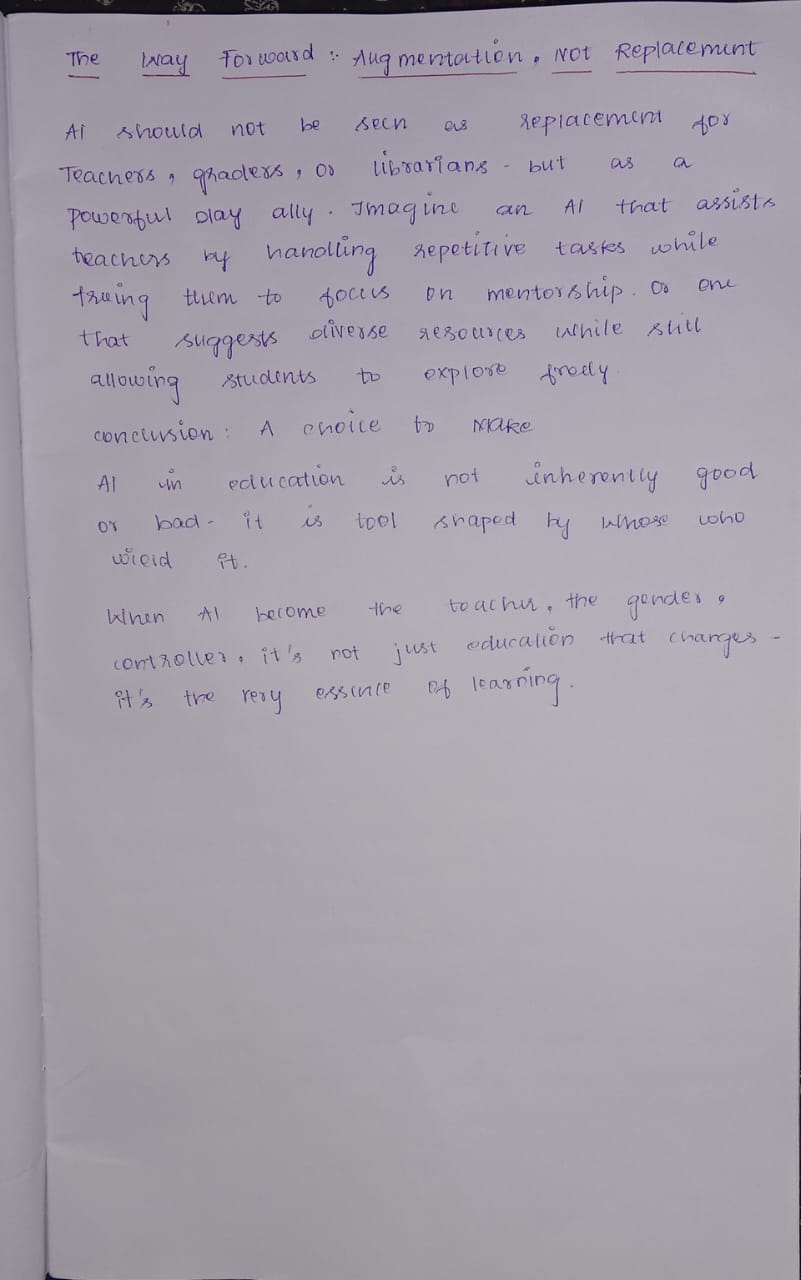 The Way Forward : Augmentation, Not Replacement
AI should not be seen as replacement for
Teachers, graders, or librarians - but as a
powerful play ally. Imagine an AI that assists
teachers by handling repetitive tasks while
freeing them to focus on mentorship. Or one
that suggests diverse resources while still
allowing students to explore freely.
conclusion: A choice to Make
AI in education is not inherently good
or bad - it is tool shaped by whose who
wield it.
When AI become the teacher, the gender,
controller, it's not just education that changes -
it's the very essence of learning.